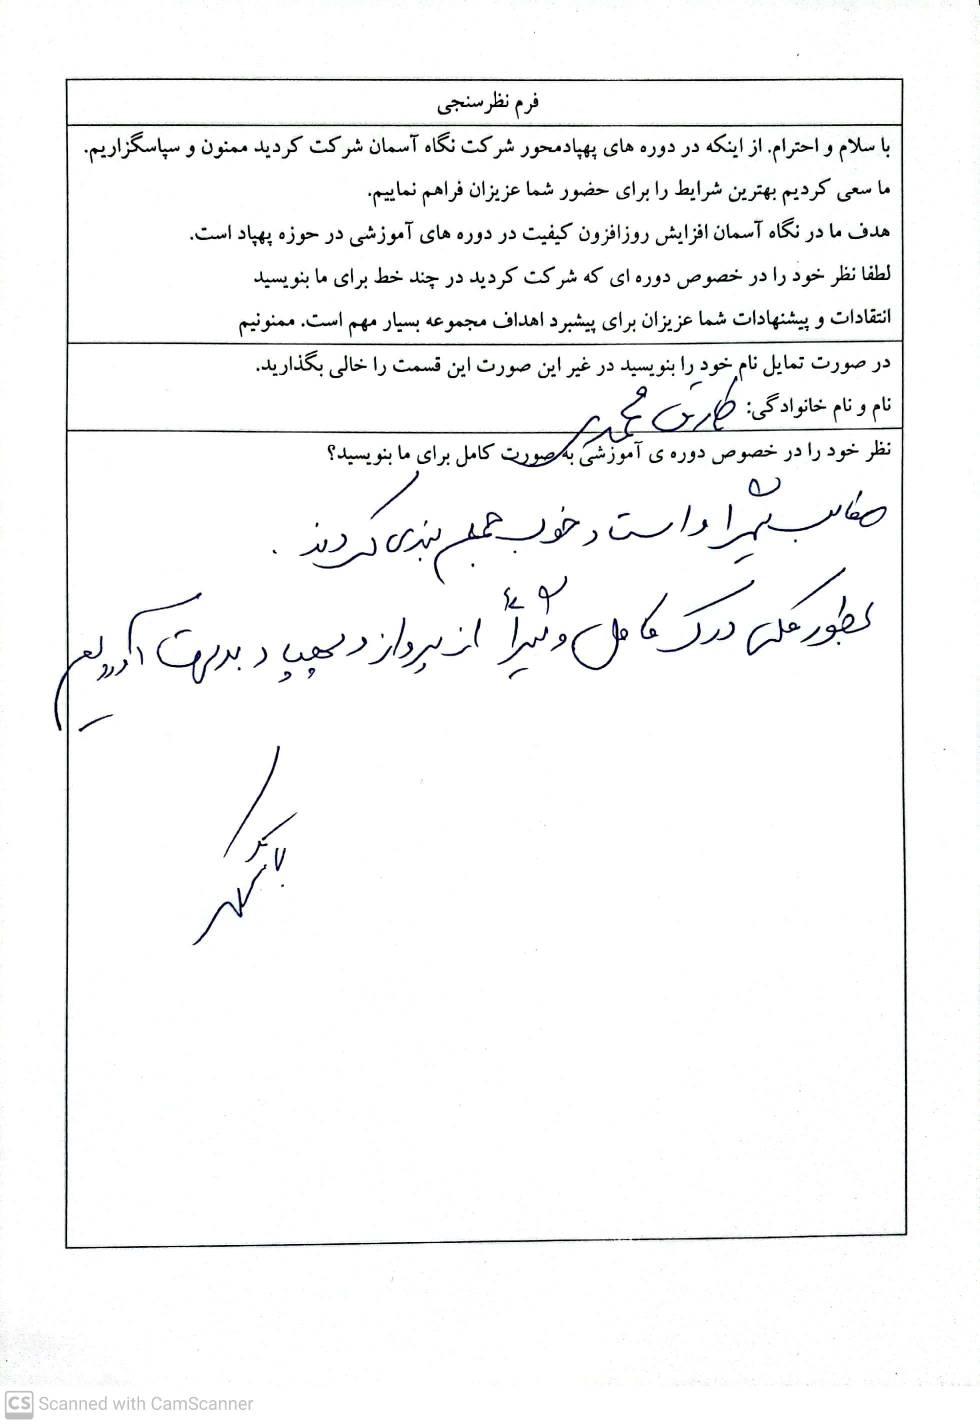 فرم نظرسنجی
با سلام و احترام. از اینکه در دوره های پهپادمحور شرکت نگاه آسمان شرکت کردید ممنون و سپاسگزاریم.
ما سعی کردیم بهترین شرایط را برای حضور شما عزیزان فراهم نماییم.
هدف ما در نگاه آسمان افزایش روزافزون کیفیت در دوره های آموزشی در حوزه پهپاد است.
لطفا نظر خود را در خصوص دوره ای که شرکت کردید در چند خط برای ما بنویسید
انتقادات و پیشنهادات شما عزیزان برای پیشبرد اهداف مجموعه بسیار مهم است. ممنونیم
در صورت تمایل نام خود را بنویسید در غیر این صورت این قسمت را خالی بگذارید.
نام و نام خانوادگی: طارق محمدی
نظر خود را در خصوص دوره ی آموزشی به صورت کامل برای ما بنویسید؟
مطالب و استاد خوب جمع بندی کردند.
بطور کلی درک کامل و از پرواز و پهپاد بدست آوردیم
با تشکر
CS Scanned with CamScanner